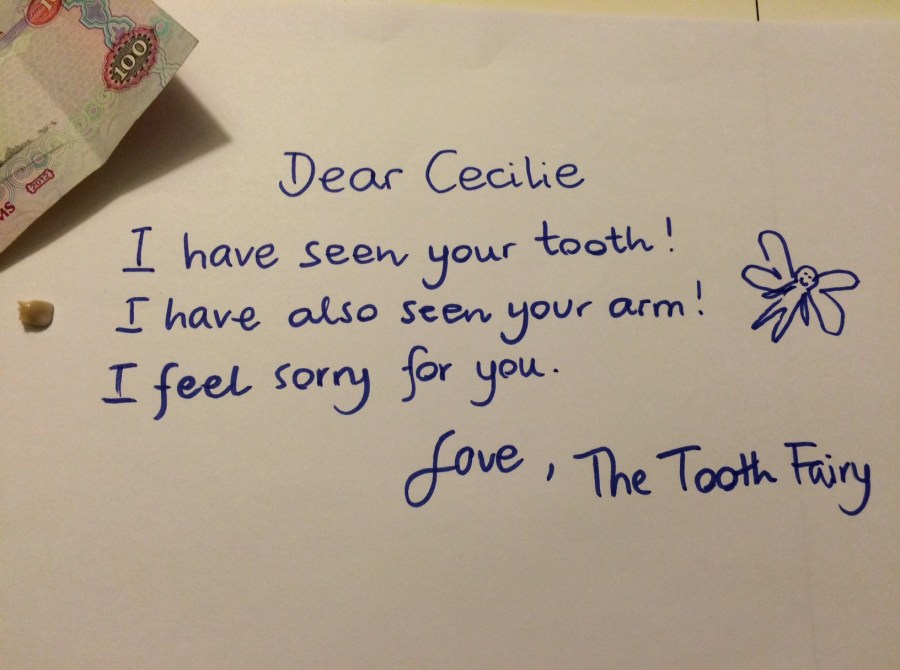 100
2012
MS
Dear Cecilie
I have seen your tooth!
I have also seen your arm!
I feel sorry for you.
Love, The Tooth Fairy